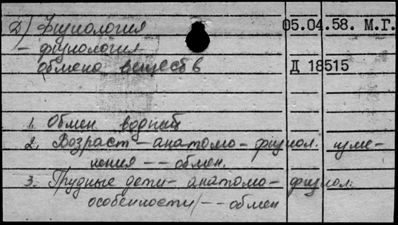 Д) Физиология 05.04.58. М.Г.
– физиология
обмена веществ Д 18515
1. Обмен водный
2. Возраст – анатомо-физиол. изме-
нения – – обмен.
3. Грудные дети – анатомо-физиол.
особенности/ – – обмен